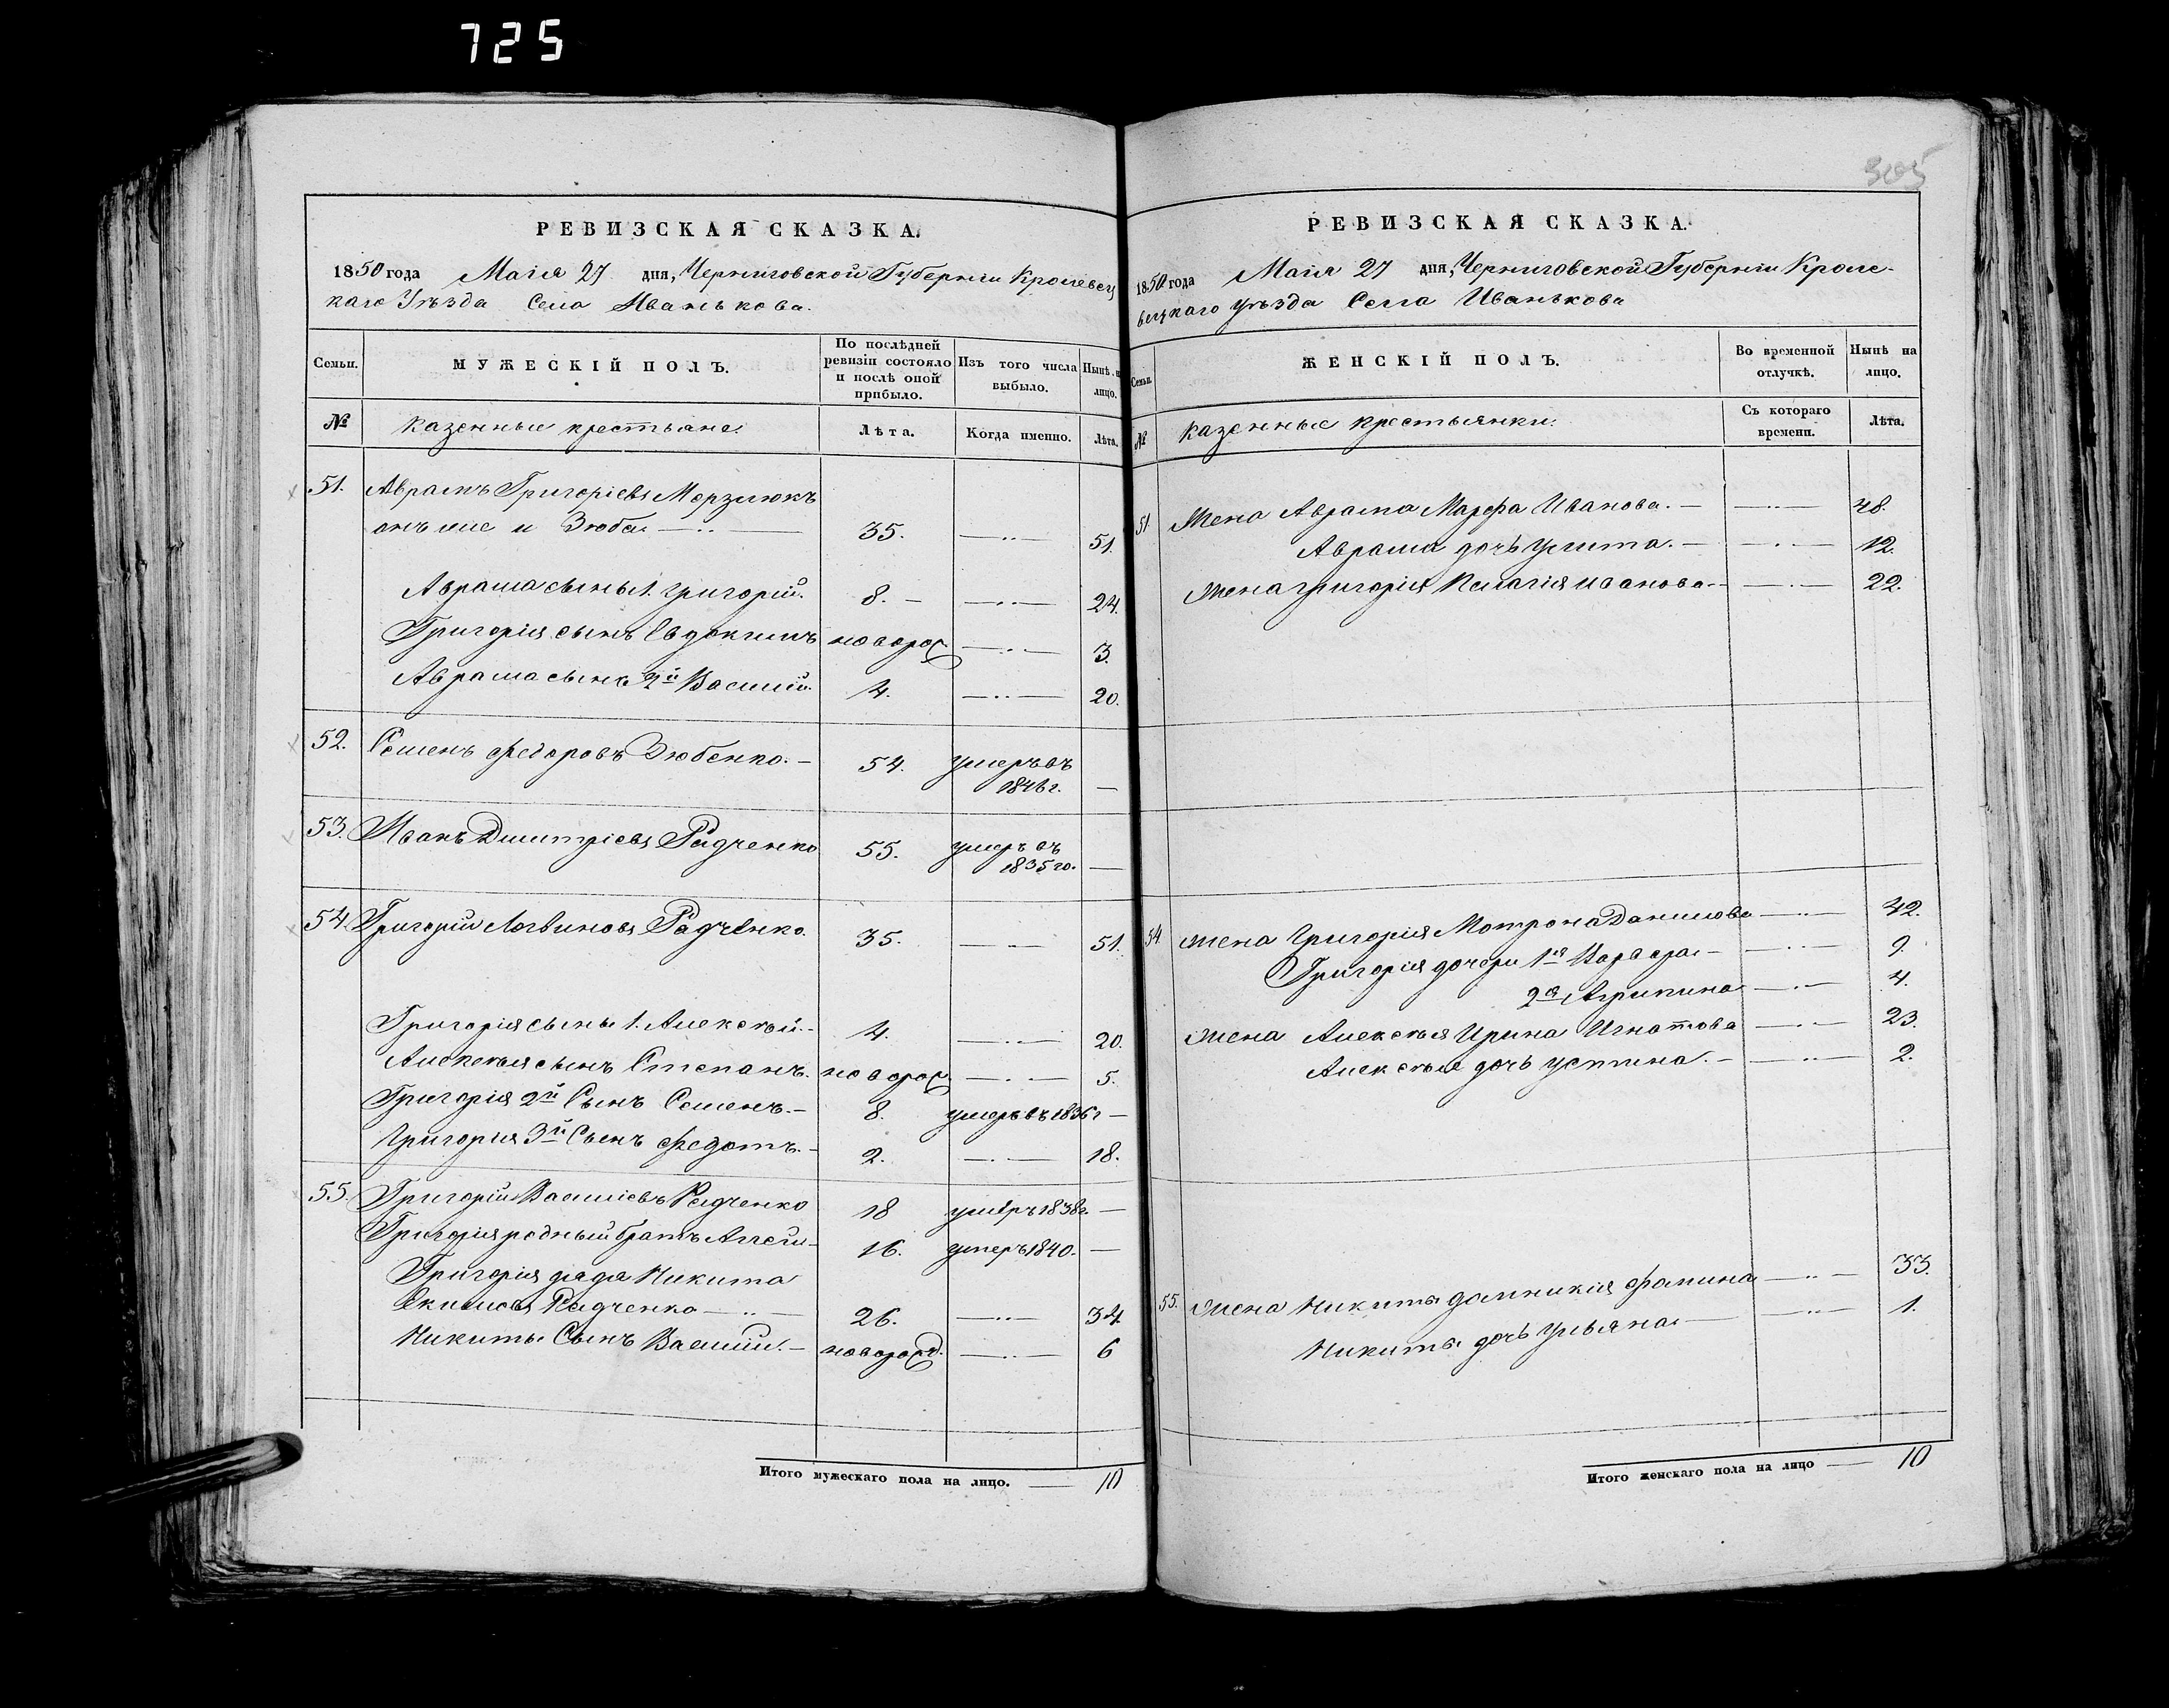 725
305
РЕВИЗСКАЯ СКАЗКА.
1850 года Маія 27 дня, Черниговской Губерніи Кролевец
каго Уѣзда Села Иванькова.
Семьи.
МУЖЕСКІЙ ПОЛЪ.
По послѣдней
ревизіи состояло
и послѣ оной
прибыло.
Изъ того числа
выбыло.
Нынѣ н
лицо.
№
Казенные крестьяне.
Лѣта.
Когда именно.
Лѣта.
51. Аврамъ Григоріевъ Морзлюкъ
онъ же и Зюба 35. 51.
Аврама сыны 1. Григорій. 8. 24.
Григорія сынъ Евдокимъ новорож. 3.
Аврама сынъ 2й Василий. 4. 20.
52. Семенъ Федоровъ Зюбенко. 54. умеръ въ
1846 г.
53. Иванъ Дмитріевъ Радченко 55. умеръ въ
1835 го.
54. Григорій Логвиновъ Радченко. 35. 51.
Григорія сыны 1. Алексѣй. 4. 20.
Алексѣя сынъ Степанъ. новорож. 5.
Григорія 2й Сынъ Семенъ. 8. умеръ въ 1836 г
Григорія 3й Сынъ Федотъ. 2. 18.
55. Григорій Василіевъ Радченко 18 умеръ 1838 г.
Григорія родный братъ 16. умеръ 1840.
Григорія дядя Никита
Екимовъ Радченко 26. 34
Никиты Сынъ Василий. новорожд. 6
Итого мужескаго пола на лицо. 10
РЕВИЗСКАЯ СКАЗКА.
1850 года Маія 27 дня, Черниговской Губерніи Кроле-
вецкаго уѣзда Села Иванькова
Семьи.
ЖЕНСКІЙ ПОЛЪ.
Во временной
отлучкѣ.
Нынѣ на
лицо.
№
Казенные крестьянки.
Съ котораго
времени.
Лѣта.
51. Жена Аврама Марфа Иванова. 48.
Аврама дочь Улита. 12.
Жена Григорія Пелагія Иванова 22.
54. Жена Григорія Мотрона Данилова 42.
Григорія дочери 1я Варвара 9.
2я Агрипина 4.
Жена Алексѣя Ирина Игнатова 23.
Алексѣя дочь Устина. 2.
55. Жена Никиты Домникія Фомина 33.
Никиты дочь Ульяна 1.
Итого женскаго пола на лицо 10